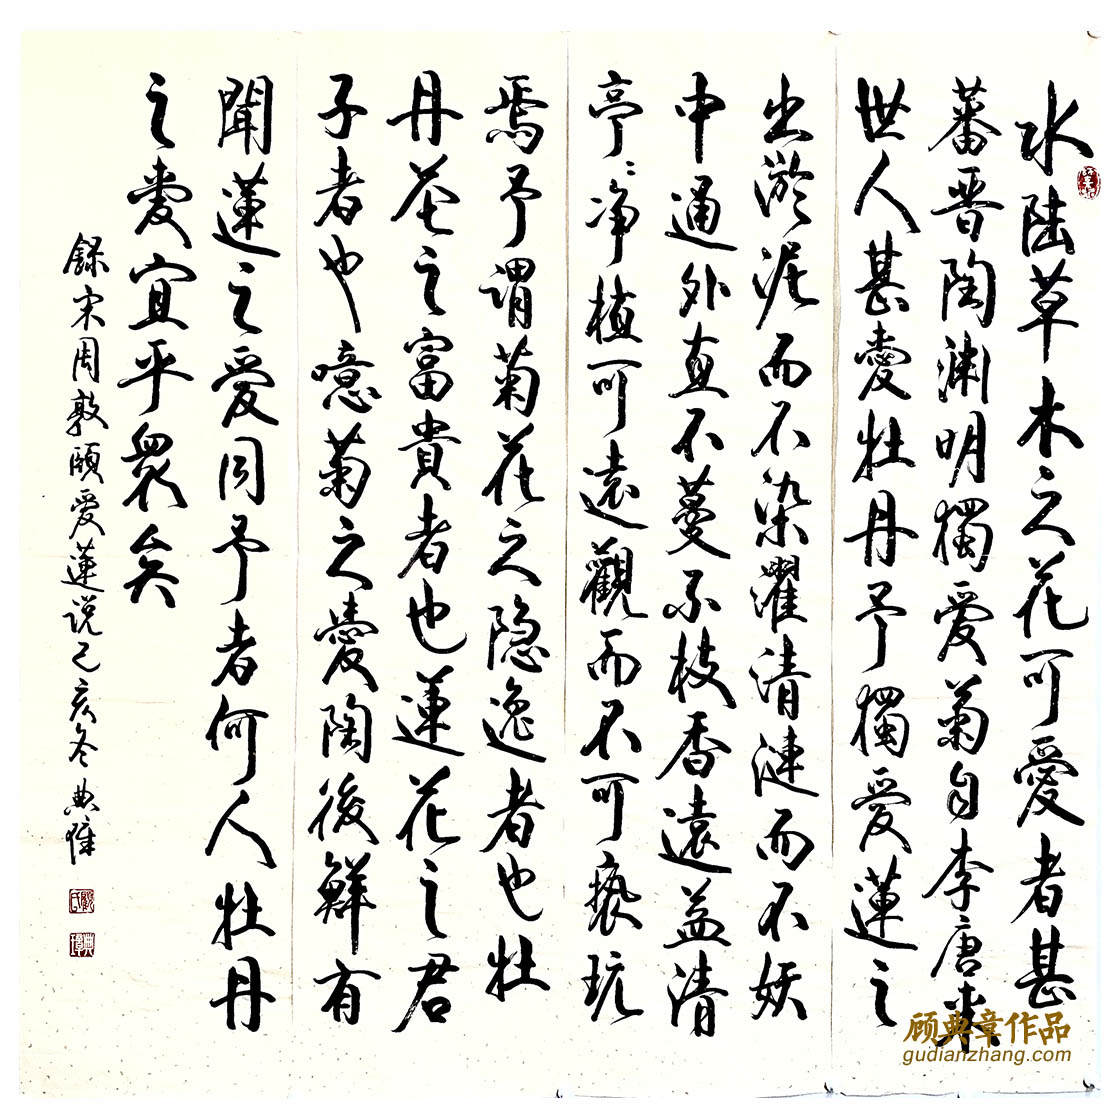 水陸草木之花可愛者甚
蕃晋陶渊明獨愛菊自李唐来
世人甚愛牡丹予獨愛蓮之
出淤泥而不染濯清漣而不妖
中通外直不蔓不枝香遠益清
亭〻净植可遠觀而不可褻玩
焉予謂菊花之隐逸者也牡
丹花之富貴者也蓮花之君
子者也噫菊之愛陶後鮮有
聞蓮之愛同予者何人牡丹
之愛宜乎衆矣
錄宋周敦頤愛蓮说己亥冬典璋
顧氏
典璋
顾典章作品
gudianzhang.com